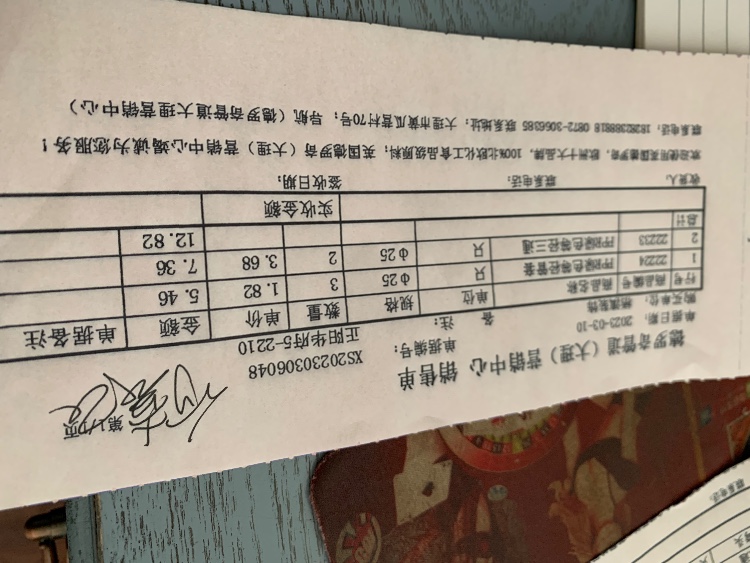 德罗奇管道（大理）营销中心 销售单
第1/1页
单据日期： 2023-03-10 单据编号： XS20230306048
购买单位： 备 注： 正阳华府5-2210
行号 商品编号 商品名称 单位 规格 数量 单价 金额 单据备注
1 22224 PP绿色等径管套 只 Φ25 3 1.82 5.46
2 22233 PP绿色等径三通 只 Φ25 2 3.68 7.36
总计 12.82
实收金额
收货人： 联系电话： 签收日期：
欢迎使用英国德罗奇，欧洲十大品牌，100%北欧化工食品级原料；英国德罗奇（大理）营销中心竭诚为您服务！
联系电话：18282388818 0872-3066385 联系地址：大理市黄瓜营村70号；导航（德罗奇管道大理营销中心）
联系电话：